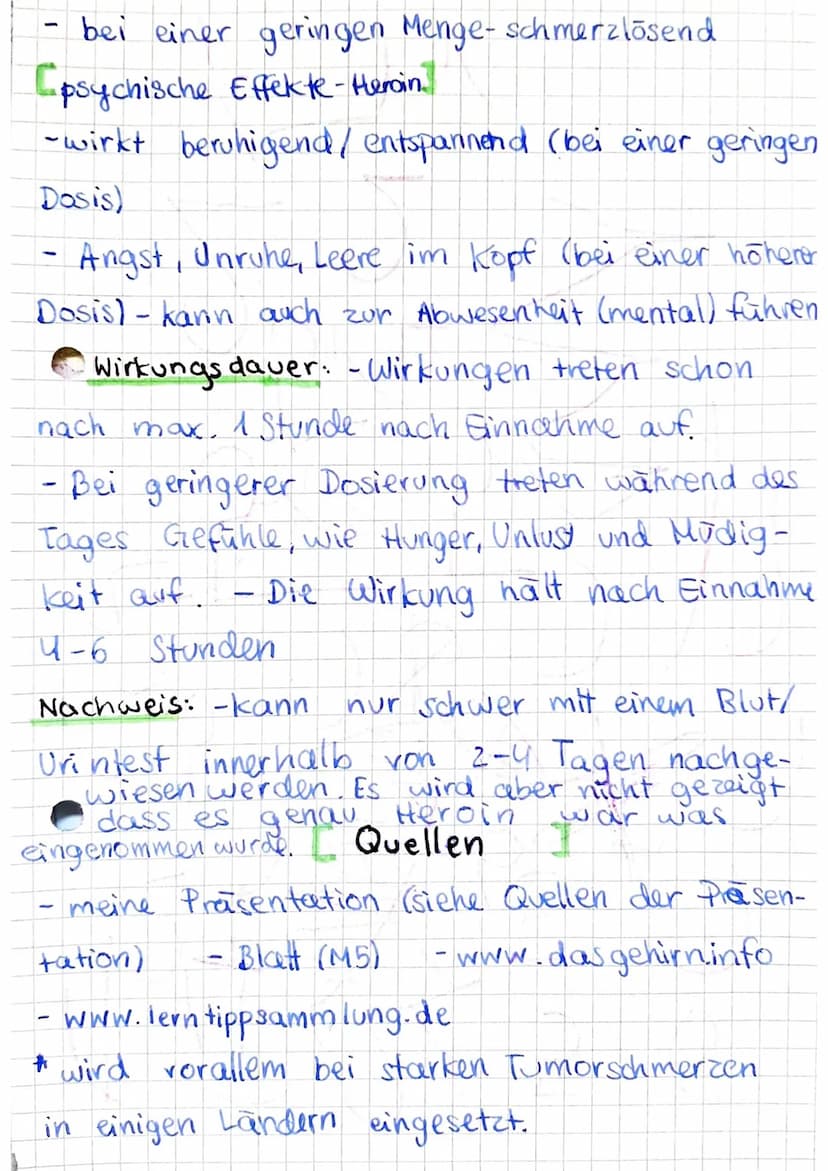 - bei einer geringen Menge - schmerzlösend
[psychische Effekte - Heroin]
- wirkt beruhigend / entspannend (bei einer geringen
Dosis)
- Angst, Unruhe, Leere im Kopf (bei einer höherer
Dosis) - kann auch zur Abwesenheit (mental) führen
Wirkungsdauer: - Wirkungen treten schon
nach max. 1 Stunde nach Einnahme auf.
- Bei geringerer Dosierung treten während des
Tages Gefühle, wie Hunger, Unlust und Müdig-
keit auf. - Die Wirkung hält nach Einnahme
4-6 Stunden
Nachweis: - kann nur schwer mit einem Blut/
Urintest innerhalb von 2-4 Tagen nachge-
wiesen werden. Es wird aber nicht gezeigt
dass es genau Heroin war was
eingenommen wurde. [ Quellen ]
- meine Präsentation (siehe Quellen der Präsen-
tation) - Blatt (M5) - www.dasgehirn.info
- www.lerntippsammlung.de
* wird vorallem bei starken Tumorschmerzen
in einigen Ländern eingesetzt.